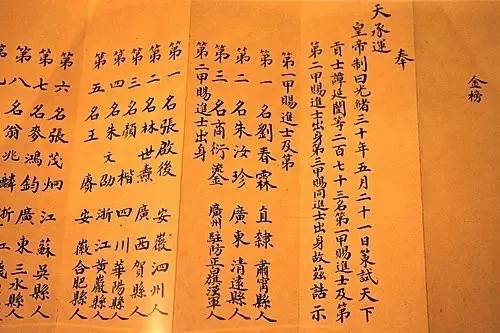 金榜
奉
天承運
皇帝制曰光緒三十年五月二十一日策試天下
貢士譚延闓等二百七十三名第一甲賜進士及第
第二甲賜進士出身第三甲賜同進士出身故茲誥示
第一甲賜進士及第
第一名劉春霖 直隸 肅寧縣人
第二名朱汝珍 廣東 清遠縣人
第三名商衍鎏 廣州駐防正白旗漢軍人
第二甲賜進士出身
第一名張啟後 安徽 泗州人
第二名林世燾 廣西 賀縣人
第三名顏楷 四川 華陽縣人
第四名朱文劭 浙江 黃巖縣人
第五名王賡 安徽 合肥縣人
第六名張茂炯 江蘇 吳縣人
第七名麥鴻鈞 廣東 三水縣人
第八名翁兆麟 浙江